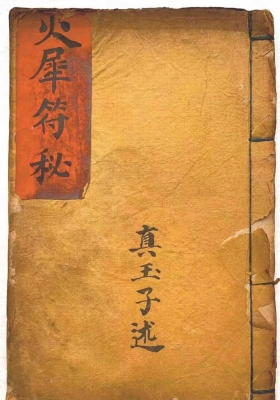 火犀符秘
真玉子述